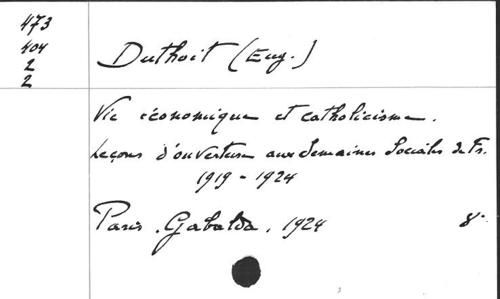 473
404
2
2
Duthoit (Eug.)
Vie économique et catholicisme.
Leçons d'ouverture aux Semaines Sociales de Fr.
1919 - 1924
Paris. Gabalda. 1924 8°